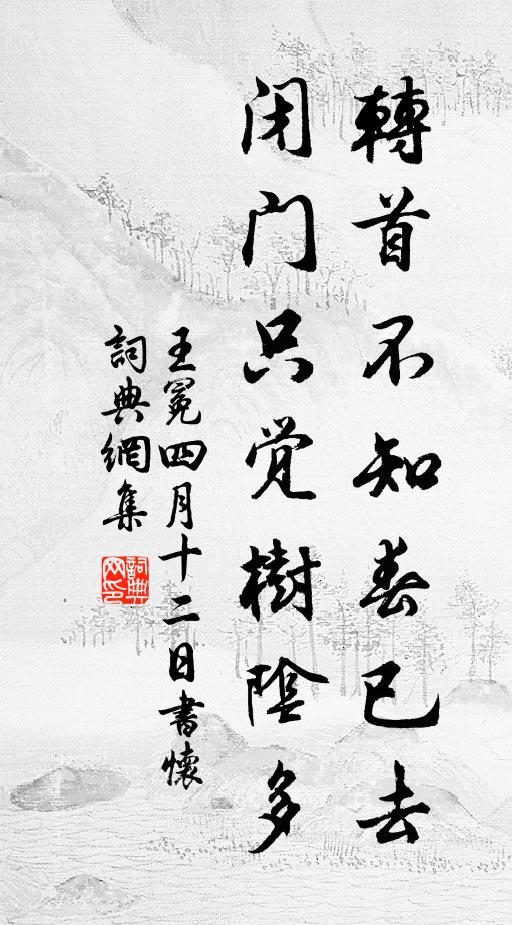 轉首不知春已去
闭门只觉樹陰多
王冕四月十二日書懷
詞典網集
詞典网印